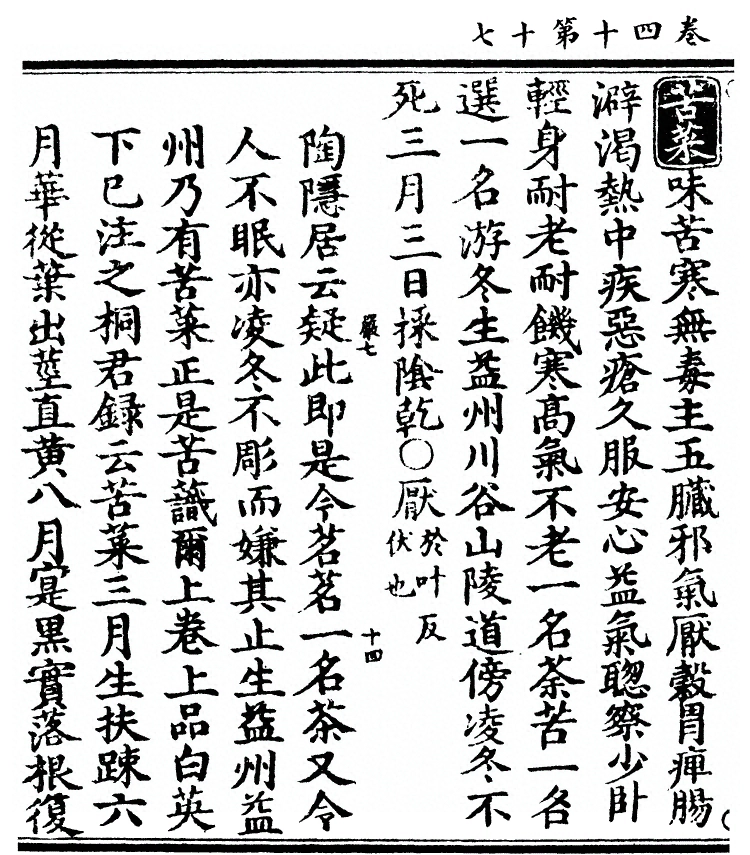 卷四十第十七
苦菜味苦寒無毒主五臓邪氣厭糓胃痺腸
澼渴熱中疾惡瘡久服安心益氣聦察少卧
輕身耐老耐饑寒高氣不老一名荼苦一名
選一名游冬生益州川谷山陵道傍凌冬不
死三月三日採隂乾○厭於叶反伏也
嚴七
十四
陶隱居云疑此即是今茗茗一名荼又令
人不眠亦凌冬不彫而嫌其止生益州益
州乃有苦菜正是苦蘵爾上卷上品白英
下已注之桐君録云苦菜三月生扶踈六
月華從葉出莖直黄八月寔黒實落根復